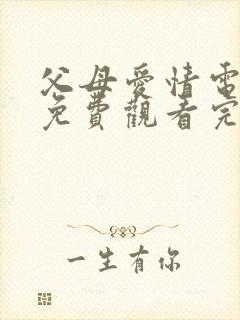 父母愛情電
免費觀看完
一生有你